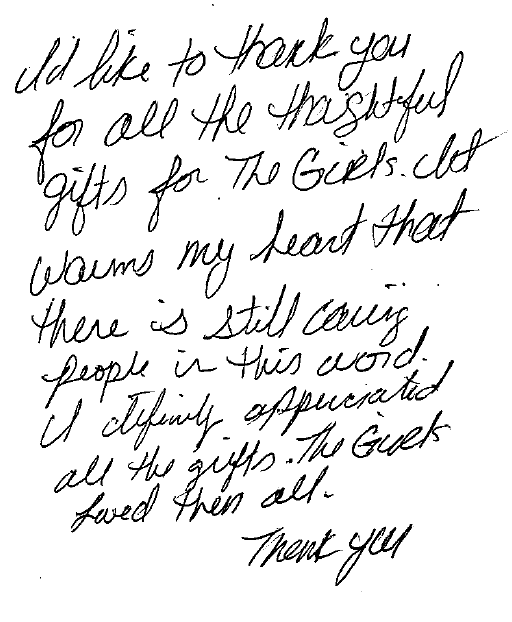 I'd like to thank you
for all the thoughtful
gifts for The Girls. It
warms my heart that
there is still caring
people in this word.
I definitly appreciated
all the gifts. The Girls
Loved then all.
Thank you